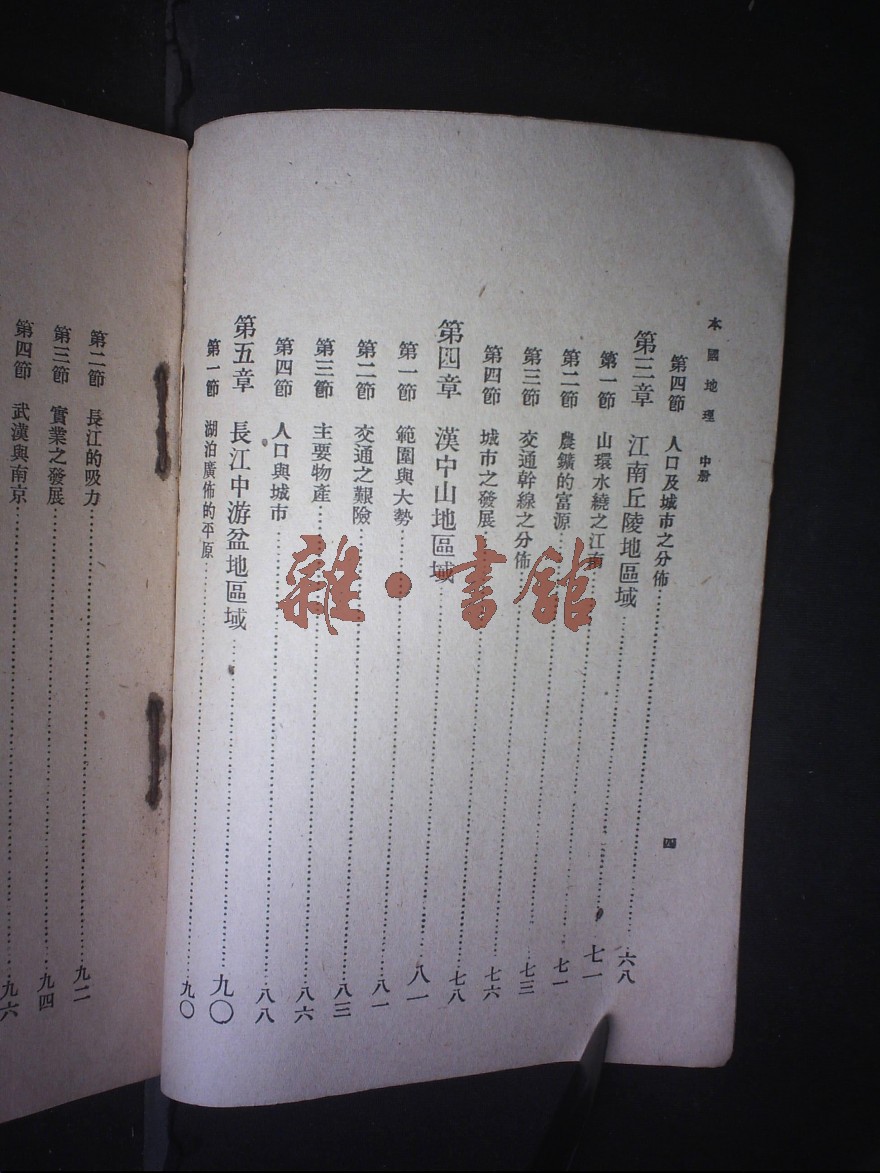 本國地理 中册
四
第四節 人口及城市之分佈……六八
第三章 江南丘陵地區域……七一
第一節 山環水繞之江南……七一
第二節 農鑛的富源……七三
第三節 交通幹線之分佈……七六
第四節 城市之發展……七八
第四章 漢中山地區域……八一
第一節 範圍與大勢……八一
第二節 交通之艱險……八三
第三節 主要物產……八六
第四節 人口與城市……八八
第五章 長江中游盆地區域……九〇
第一節 湖泊廣佈的平原……九〇
第二節 長江的吸力……九二
第三節 實業之發展……九四
第四節 武漢與南京……九六
雜·書館